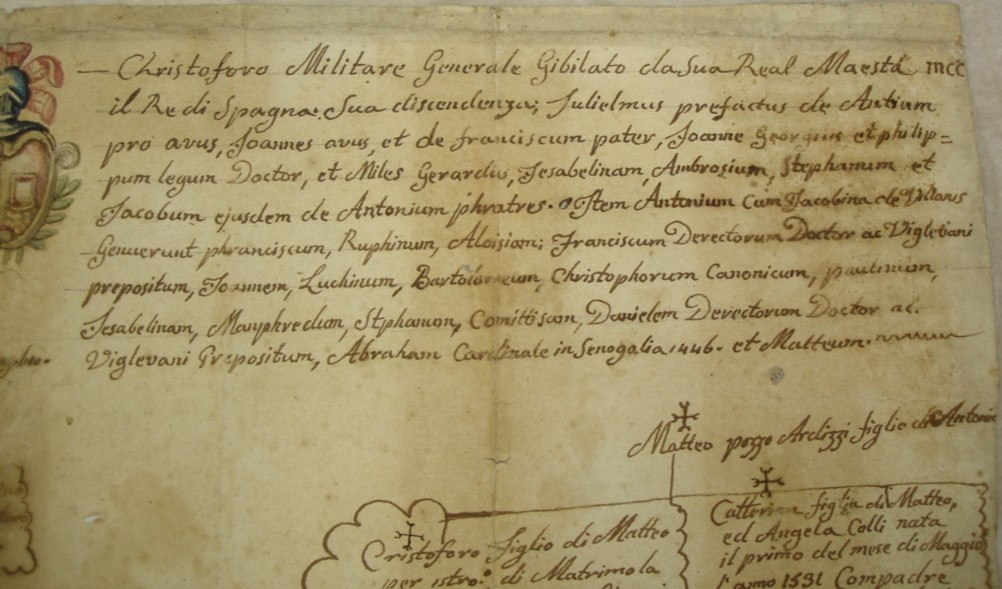 — Christoforo Militare Generale Gibilato da Sua Real Maestà MCC
il Re di Spagna. Sua discendenza; Julielmus prefactus de Antium
pro avus, Joannes avus, et de franciscum pater, Joanne Georgius et philip=
pum legum Doctor, et Miles Gerardus, Jesabelinam, Ambrosium, Stephanum et
Jacobum ejusdem de Antonium phratres. Item Antonium Cum Jacobina de Villanis
Genuerunt phranciscum, Ruphinum, Aloisiam; Franciscum Derectorum Doctor ac Viglevani
prepositum, Joannem, Luchinum, Bartolomeum, Christophorum Canonicum, paulinum,
Jesabelinam, Manphredum, Stphanum, Comittisam, Danielem Derectorum Doctor ac.
Viglevani Prepositum, Abraham Cardinale in Senogalia 1446. et Matteum.
Matteo pozzo Ardizzi figlio di Antonio
Catterina figlia di Matteo,
ed Angela Colli nata
il primo del mese di Maggio
l'anno 1531 Compadre
Cristoforo figlio di Matteo
per istro. di Matrimola